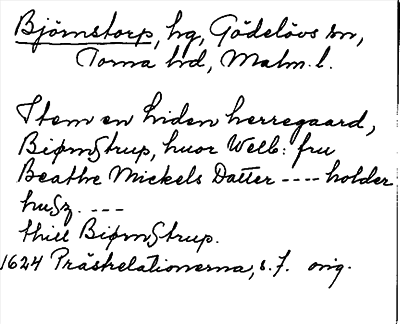 Björnstorp, hg, Gödelövs sn,
Torna hd, Malm. l.
Item en liden herregaard,
BiørnStrup, huor Welb: fru
Beathe Mickels Datter ---- holder
huSz. ---
thill BiørnStrup.
1624 Prästrelationerna, s. 7. orig.